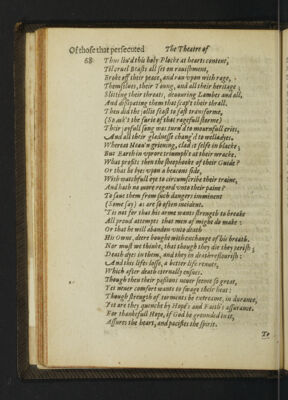 Of those that persecuted The Theatre of
68 Thus liu'd this holy Flocke at hearts content,
Til cruel Beasts all set on rauishment,
Broke off their peace, and ran vpon with rage,
Themselues, their Young, and all their heritage;
Slitting their throats, deuouring Lambes and all,
And dissipating them that scap't their thrall.
Then did the iollie feast to fast transforme,
(So ask't the furie of that ragefull storme)
Their ioyfull song was turn'd to mournfull cries,
And all their gladnesse chang'd to welladies,
Whereat Heau'n grieuing, clad it selfe in blacke;
But Earth in vprore triumph't at their wracke.
What profits then the sheephooke of their Guide?
Or that he lyes vpon a beacons side,
With watchfull eye to circumscribe their traine,
And hath no more regard vnto their paine?
To saue them from such dangers imminent
(Some say) as are so often incident.
'Tis not for that his arme wants strength to breake
All proud attempts that men of might do make:
Or that he will abandon vnto death
His Owne, deere bought with exchange of his breath.
Nor must we thinke, that though they die they perish;
Death dyes in them, and they in death reflourish:
And this lifes losse, a better life renues,
Which after death eternally ensues.
Though then their passions neuer seeme so great,
Yet neuer comfort wants to swage their heat:
Though strength of torments be extreame in durance,
Yet are they quencht by Hope's and Faith's assurance.
For thankefull Hope, if God be grounded in it,
Assures the heart, and pacifies the spirit.
To